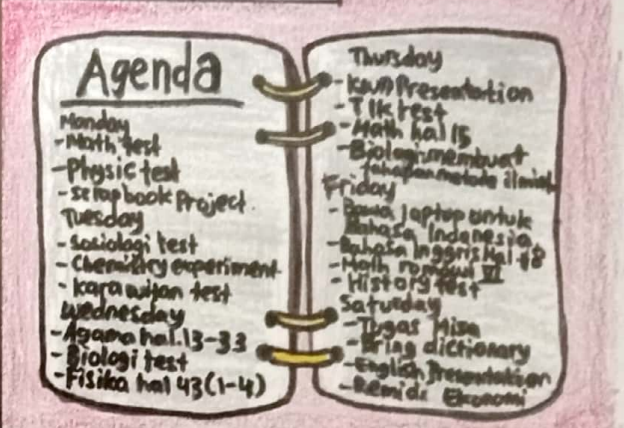 Agenda
Monday
-Math test
-Physic test
-scrapbook Project.
Tuesday
-Sosiologi test
-Chemistry experiment
-Karawitan test
Wednesday
-Agama hal.13-33
-Biologi test
-Fisika hal 43(1-4)
Thursday
-KWU Presentation
-TIK test
-Math hal 15
-Biologi membuat
tahapan metode ilmiah
Friday
-Bawa laptop untuk
Bahasa Indonesia
-Bahasa Inggris hal 48
-Math romawi VI
-History test
Saturday
-Tugas Misa
-Bring dictionary
-English Presentation
-Remidi Ekonomi